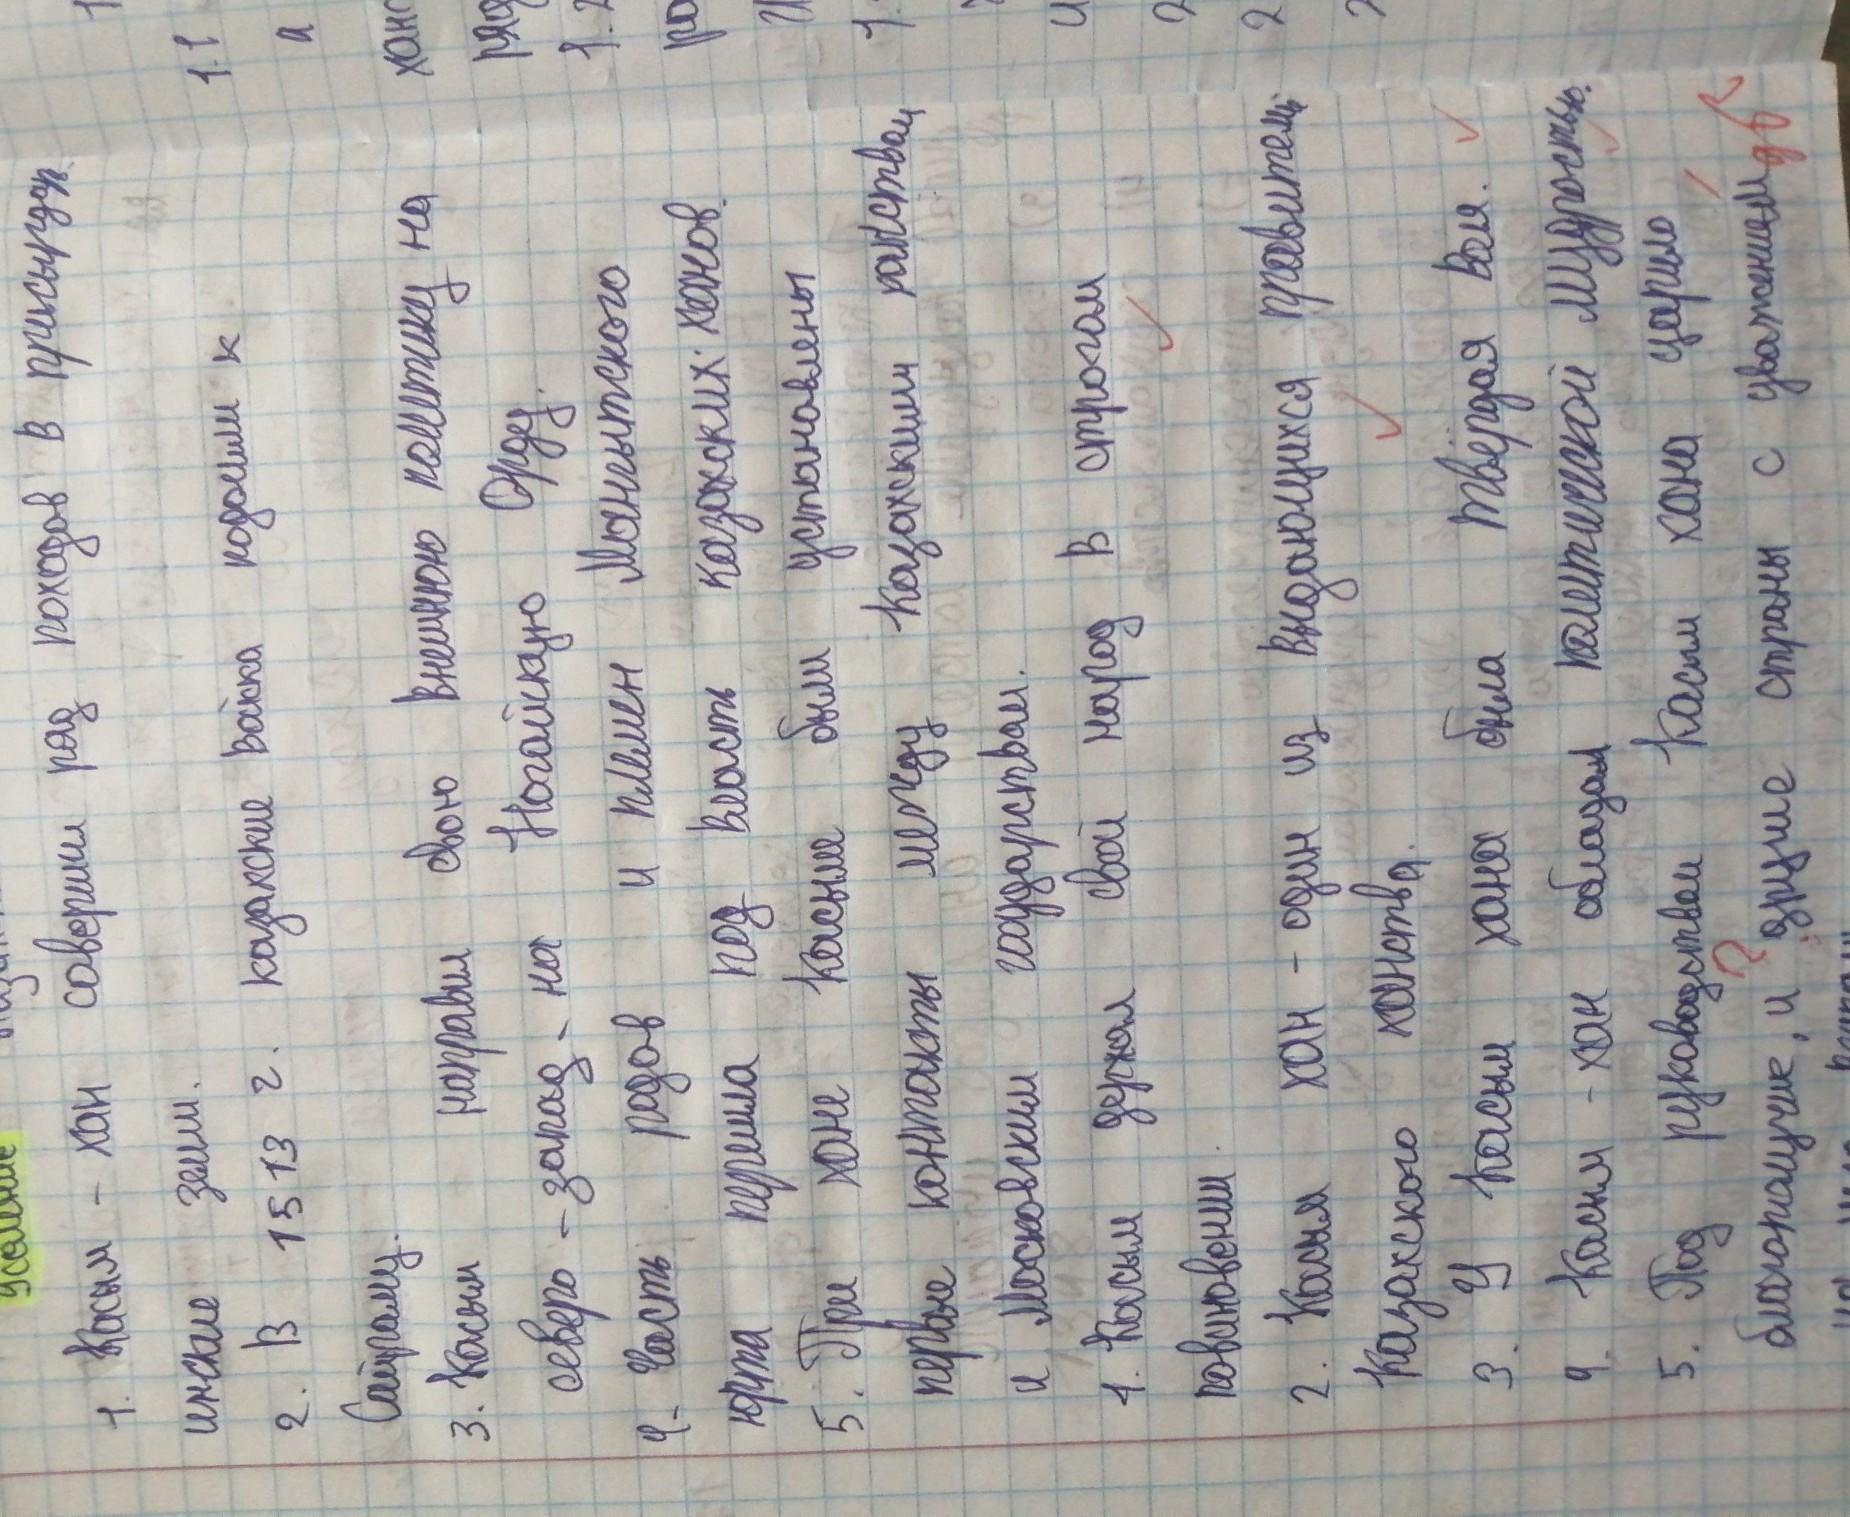 усиление
1. Касым - хан совершил ряд походов в присырдар
инские земли.
2. В 1513 г. казахские войска подошли к
Сайраму.
3. Касым направил свою внешнюю политику на
северо - запад - на Ногайскую Орду.
4. Часть родов и племен Мангытского
юрта перешла под власть казахских ханов.
5. При хане Касыме были установлены
первые контакты между Казахским ханством
и Московским государством.
1. Касым держал свой народ в строгом
повиновении.
2. Касым хан - один из выдающихся правитель
Казахского ханства.
3. У Касым хана была твёрдая воля.
4. Касым - хан обладал политической мудростью.
5. Под руководством Касым хана царило
благополучие, и другие страны с уважением
1.1
а
хан
1.2
ра